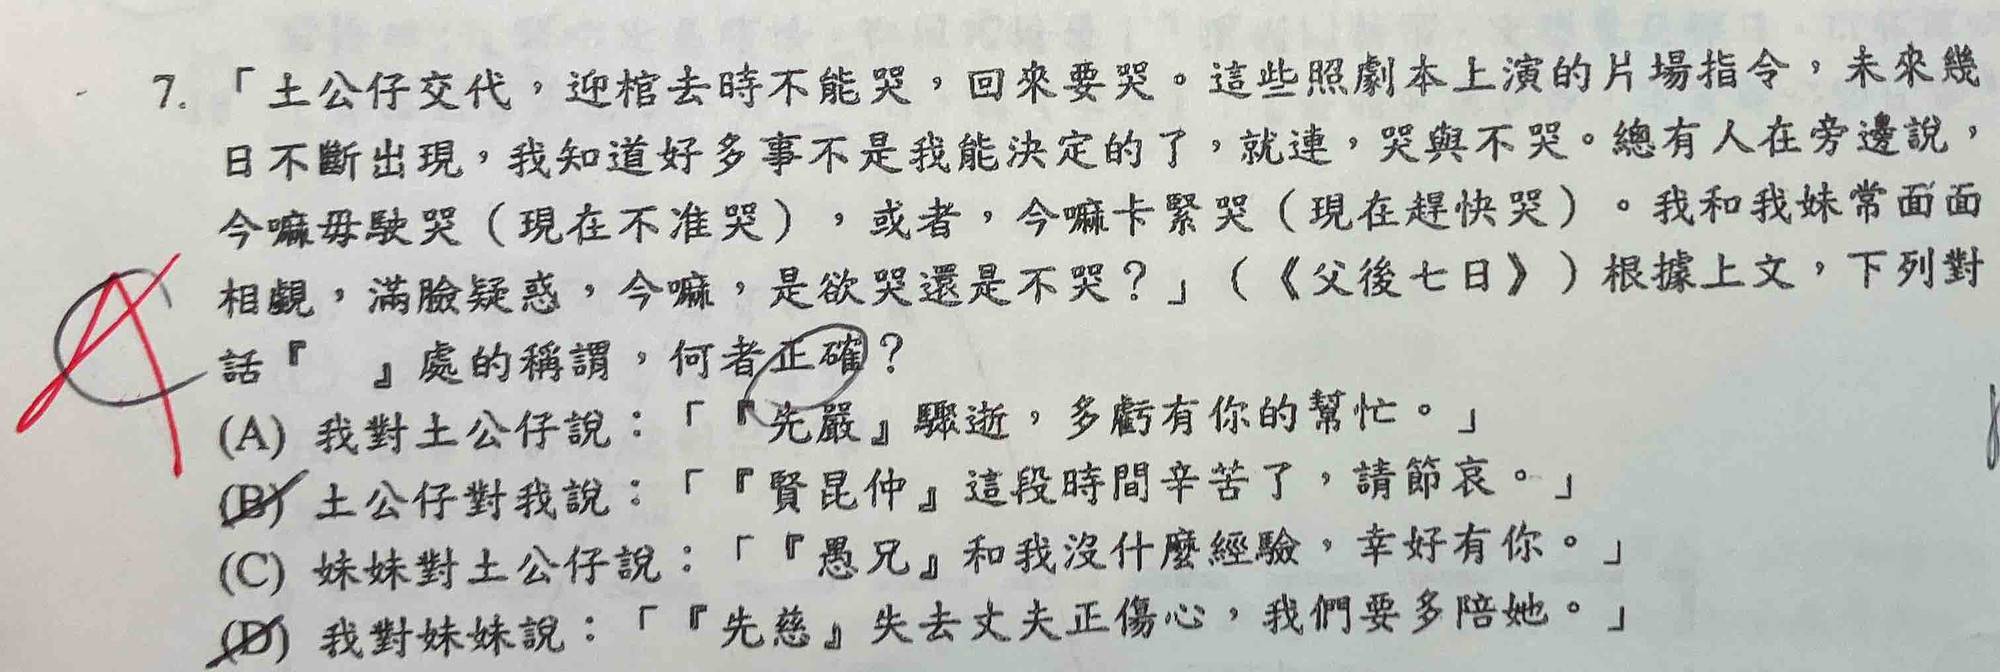 7. 「土公仔交代，迎棺去時不能哭，回來要哭。這些照劇本上演的片場指令，未來幾
日不斷出現，我知道好多事不是我能決定的了，就連，哭與不哭。總有人在旁邊說，
今嘛毋駛哭（現在不准哭），或者，今嘛卡緊哭（現在趕快哭）。我和我妹常面面
相覷，滿臉疑惑，今嘛，是欲哭還是不哭？」（《父後七日》）根據上文，下列對
A
話『　』處的稱謂，何者正確？
(A) 我對土公仔說：「『先嚴』驟逝，多虧有你的幫忙。」
(B) 土公仔對我說：「『賢昆仲』這段時間辛苦了，請節哀。」
(C) 妹妹對土公仔說：「『愚兄』和我沒什麼經驗，幸好有你。」
(D) 我對妹妹說：「『先慈』失去丈夫正傷心，我們要多陪她。」